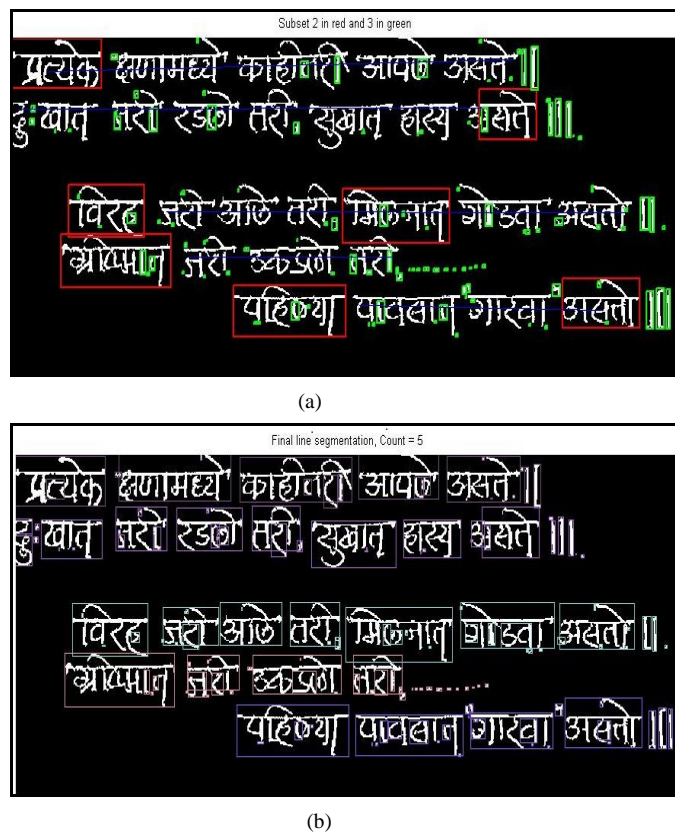 Subset 2 in red and 3 in green
प्रत्येक क्षणामध्ये काहीतरी आपले असते.||
दु:खात जरी रडलो तरी. सुखात हास्य असते |||.
विरह जरी आले तरी. मिलनात गोडवा असतो ||.
ग्रीष्मात जरी उकडले तरी...........
पहिल्या पावसात गारवा असतो |||
(a)
Final line segmentation, Count = 5
प्रत्येक क्षणामध्ये काहीतरी आपले असते.||
दु:खात जरी रडलो तरी. सुखात हास्य असते |||.
विरह जरी आले तरी. मिलनात गोडवा असतो ||.
ग्रीष्मात जरी उकडले तरी...........
पहिल्या पावसात गारवा असतो |||
(b)